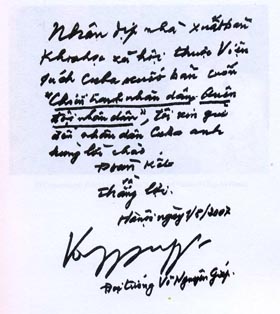 Nhân dịp nhà xuất bản
Khoa học xã hội thuộc Viện
sách Cuba xuất bản cuốn
"Chiến tranh nhân dân, Quân
đội nhân dân", tôi xin gửi
đến nhân dân Cuba anh
hùng lời chào
Đoàn kết
và
Thắng lợi.
Hà Nội ngày 1/5/2007
Đại tướng Võ Nguyên Giáp.